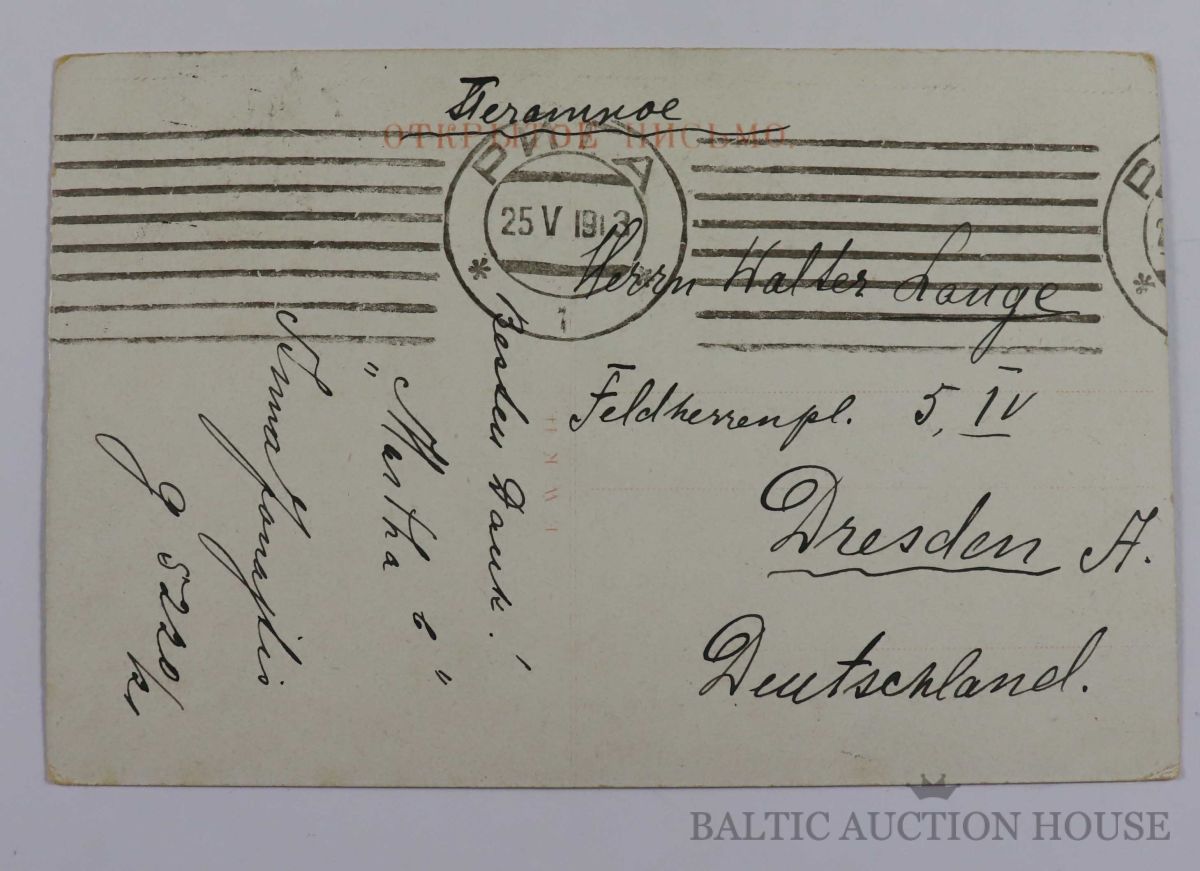 Печатное
ОТКРЫТОЕ ПИСЬМО.
РИГА
25 V 1913
1
Herrn Walter Lange
Feldherrenpl. 5, IV
Dresden A.
Deutschland.
Besten Dank!
"Martha 6"
G 5220/
BALTIC AUCTION HOUSE